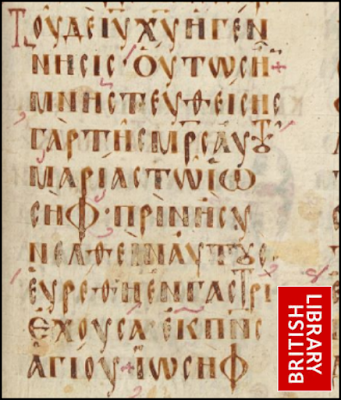 ΤΟΥΔΕΙΥΧΥΗΓΕΝ
ΝΗϹΙϹΟΥΤΩϹΗ+
ΜΝΗϹΤΕΥΘΕΙϹΗϹ
ΓΑΡΤΗϹΜΡϹΑΥΤȢ
ΜΑΡΙΑϹΤΩΙΩ
ϹΗΦ·ΠΡΙΝΗϹΥ
ΝΕΛΘΕΙΝΑΥΤΟΥϹ
ΕΥΡΕΘΗΕΝΓΑϹΤΡΙ
ΕΧΟΥϹΑΕΚΠΝϹ
ΑΓΙΟΥ+ΙΩϹΗΦ
BRITISH
LIBRARY